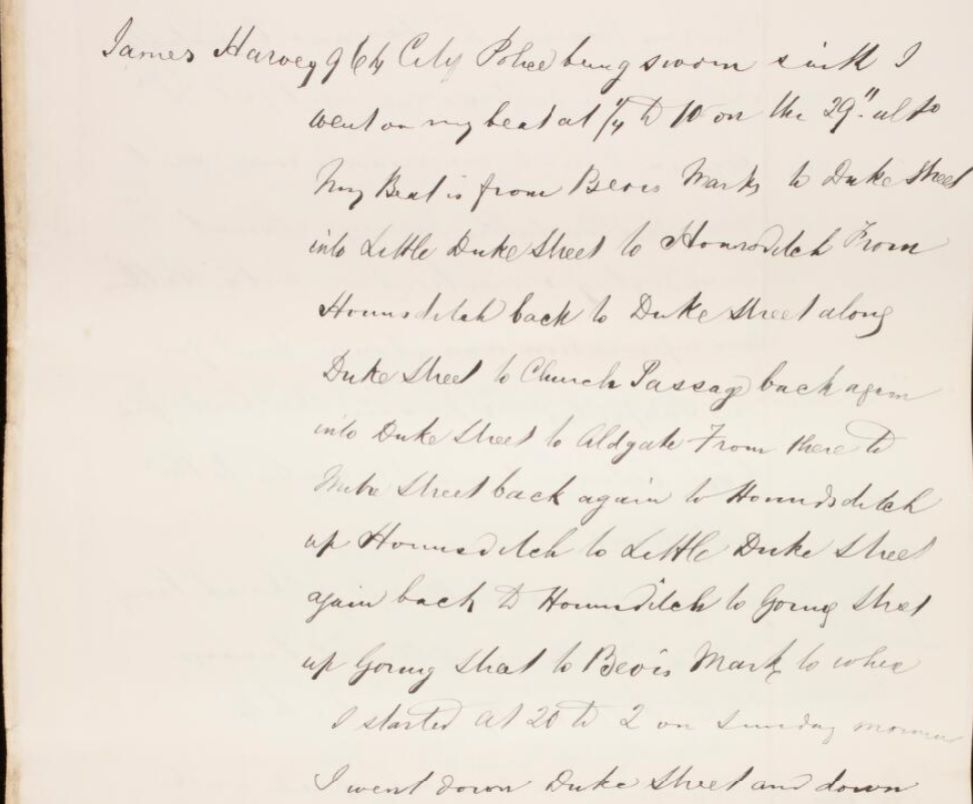 James Harvey 964 City Police being sworn saith I
went on my beat at 1/4 to 10 on the 29" ulto
My Beat is from Bevis Marks to Duke Street
into Little Duke Street to Hounsditch From
Hounsditch back to Duke Street along
Duke Street to Church Passage back again
into Duke Street to Aldgate From there to
Mitre Street back again to Houndsditch
up Hounsditch to Little Duke Street
again back to Hounsditch to Goring Street
up Goring Street to Bevis Marks to where
I started At 20 to 2 on Sunday morning
I went down Duke Street and down